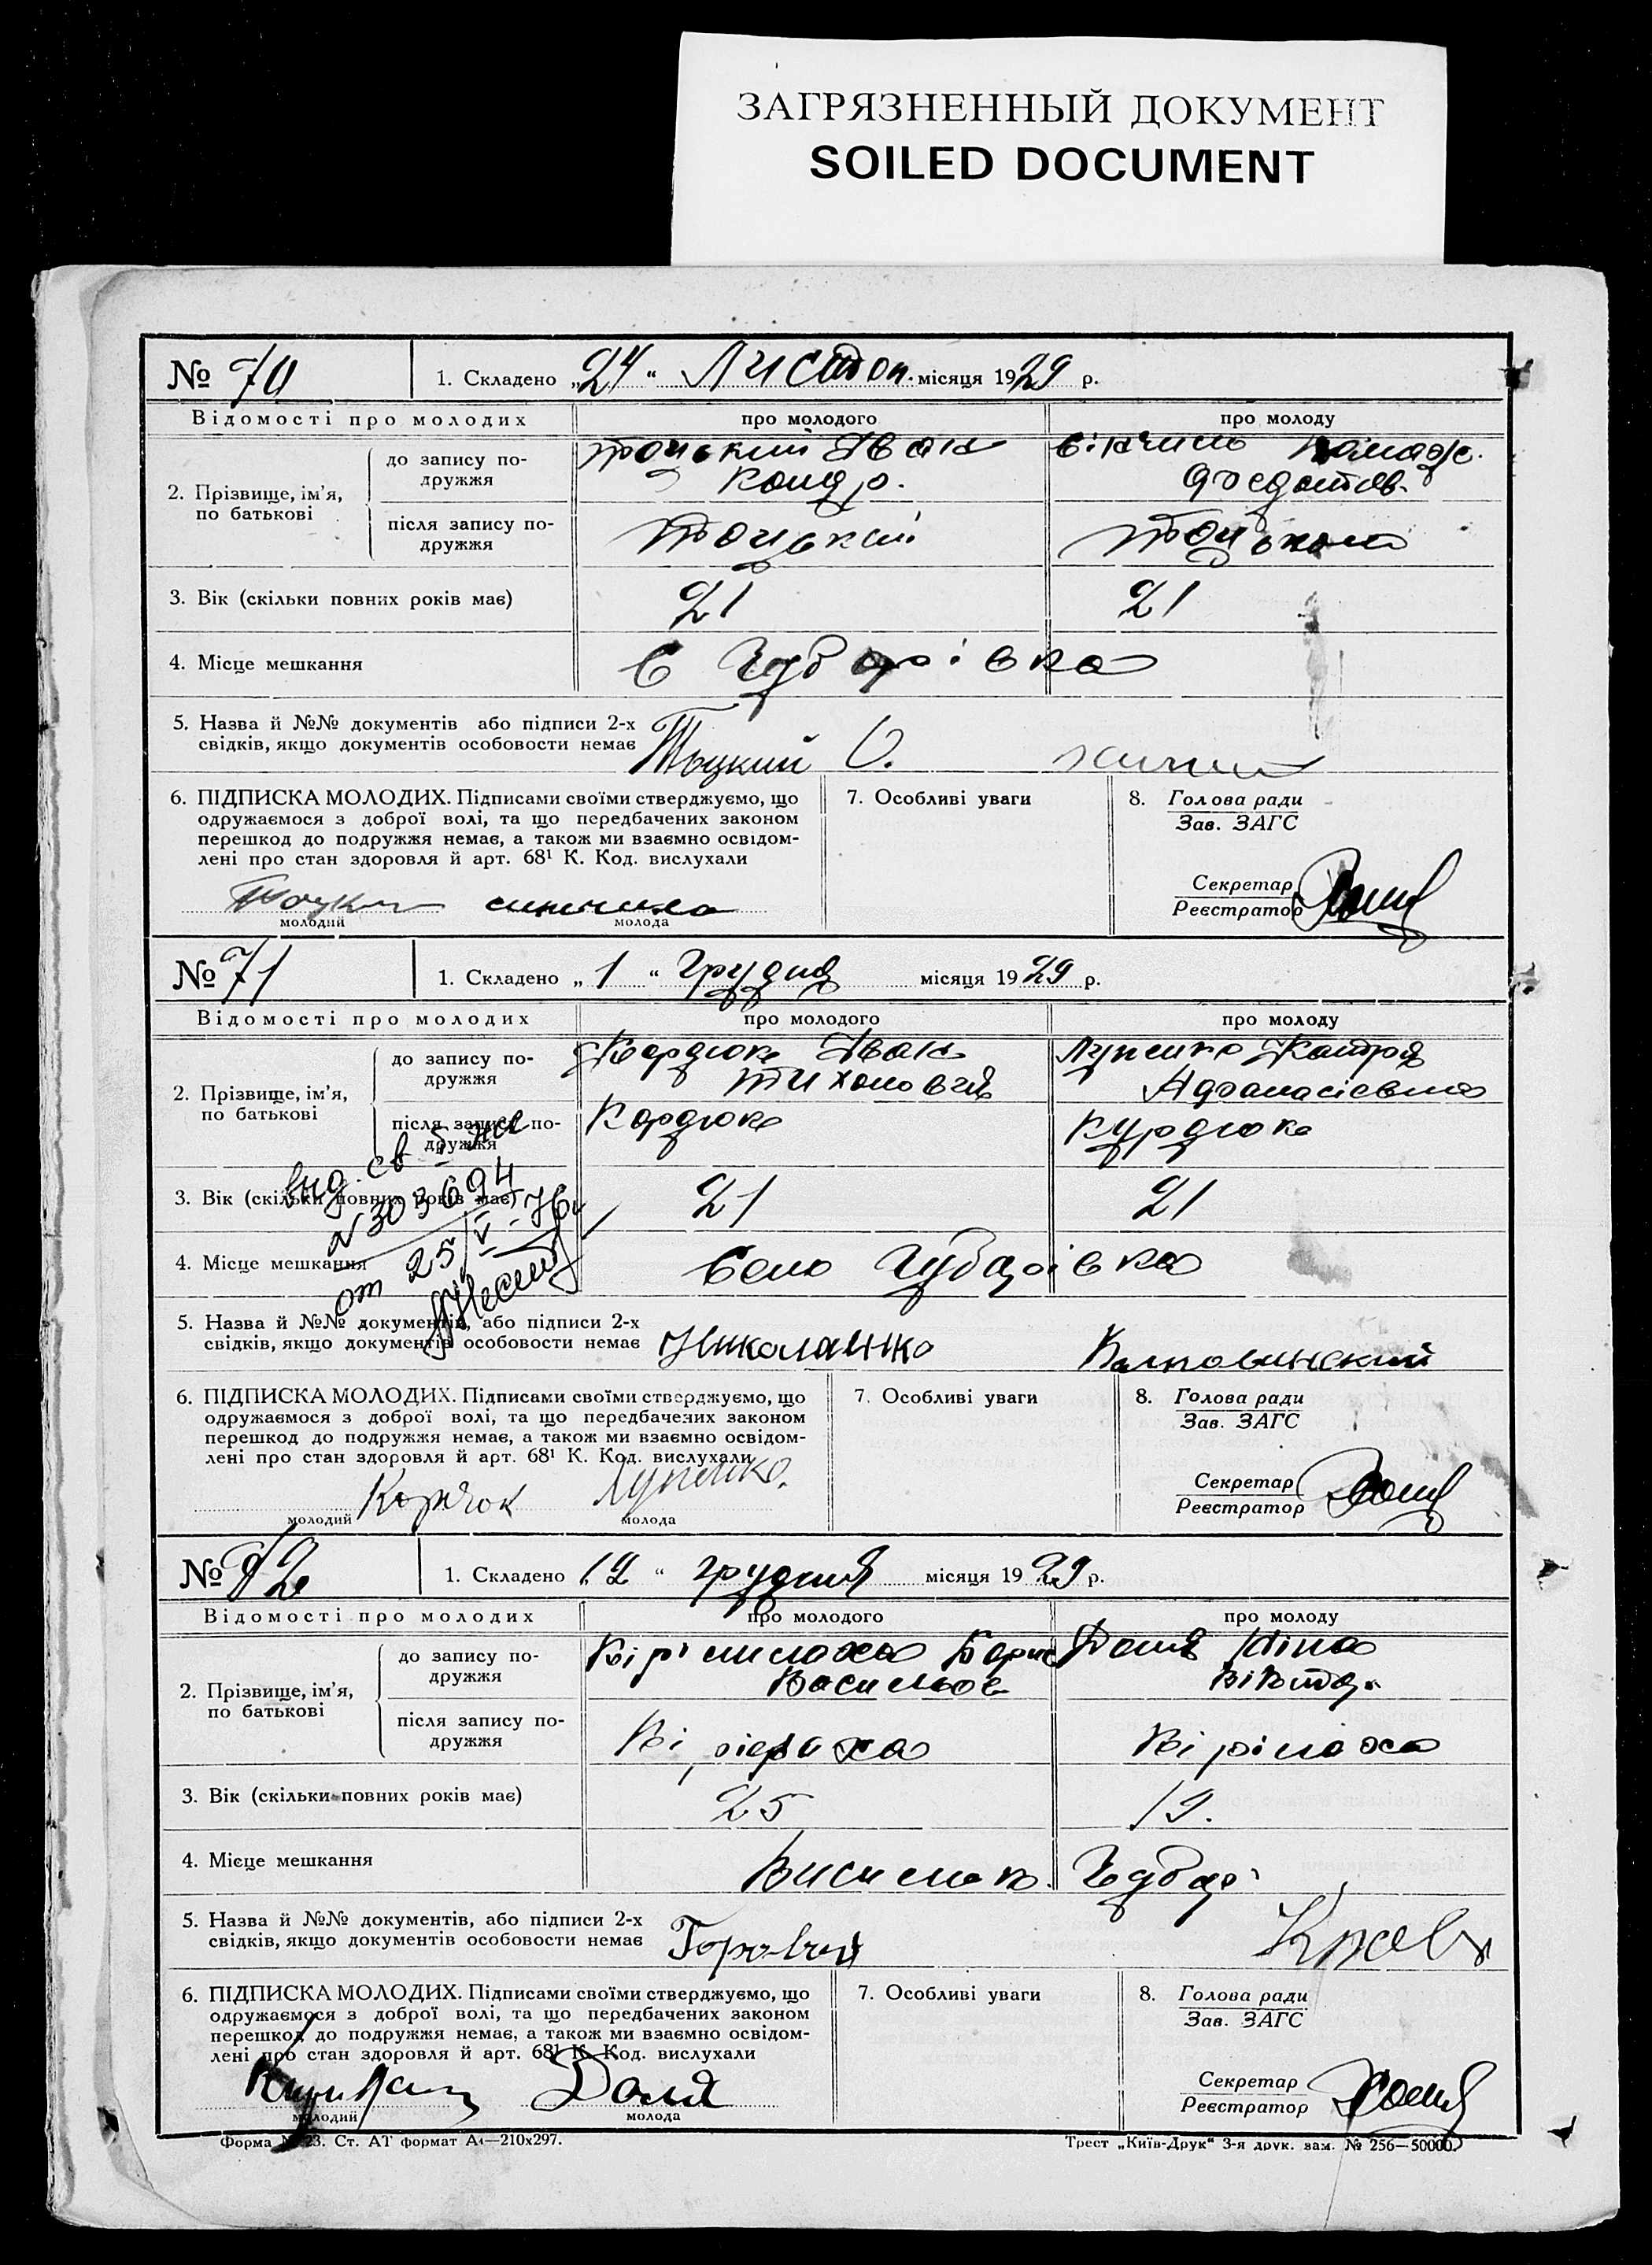 ЗАГРЯЗНЕННЫЙ ДОКУМЕНТ
SOILED DOCUMENT
№ 70
1. Складено „24“ Листоп. місяця 1929 р.
Відомості про молодих
про молодого
про молоду
2. Прізвище, ім'я, по батькові
до запису по-
дружжя
Іван
Кондр.
після запису по-
дружжя
Тоцький
3. Вік (скільки повних років має)
21
21
4. Місце мешкання
с Губарівка
5. Назва й №№ документів або підписи 2-х
свідків, якщо документів особовости немає
Тоцкий О.
6. ПІДПИСКА МОЛОДИХ. Підписами своїми стверджуємо, що
одружаємося з доброї волі, та що передбачених законом
перешкод до подружжя немає, а також ми взаємно освідом-
лені про стан здоровля й арт. 68¹ К. Код. вислухали
молодий
молода
7. Особливі уваги
8. Голова ради
Зав. ЗАГС
Секретар
Реєстратор
№ 71
1. Складено „1“ Грудня місяця 1929 р.
Відомості про молодих
про молодого
про молоду
2. Прізвище, ім'я, по батькові
до запису по-
дружжя
Кордюк Іван
Тихонович
Лупенко Катря
Афанасієвна
після запису по-
дружжя
Кордюк
Курдюк
3. Вік (скільки повних років має)
21
21
4. Місце мешкання
Село Губарівка
5. Назва й №№ документів, або підписи 2-х
свідків, якщо документів особовости немає
выд. св
№ 303694
от 25/V-76г
6. ПІДПИСКА МОЛОДИХ. Підписами своїми стверджуємо, що
одружаємося з доброї волі, та що передбачених законом
перешкод до подружжя немає, а також ми взаємно освідом-
лені про стан здоровля й арт. 68¹ К. Код. вислухали
Лупенко.
молодий
молода
7. Особливі уваги
8. Голова ради
Зав. ЗАГС
Секретар
Реєстратор
№ 72
1. Складено „12“ грудня місяця 1929 р.
Відомості про молодих
про молодого
про молоду
2. Прізвище, ім'я, по батькові
до запису по-
дружжя
Борис
Васильов
Доля Ніна
після запису по-
дружжя
3. Вік (скільки повних років має)
25
19.
4. Місце мешкання
Губар
5. Назва й №№ документів, або підписи 2-х
свідків, якщо документів особовости немає
6. ПІДПИСКА МОЛОДИХ. Підписами своїми стверджуємо, що
одружаємося з доброї волі, та що передбачених законом
перешкод до подружжя немає, а також ми взаємно освідом-
лені про стан здоровля й арт. 68¹ К. Код. вислухали
Доля
молодий
молода
7. Особливі уваги
8. Голова ради
Зав. ЗАГС
Секретар
Реєстратор
Форма № 23. Ст. АТ формат А4—210х297.
Трест „Київ-Друк“ 3-я друк. зам. № 256—50000.